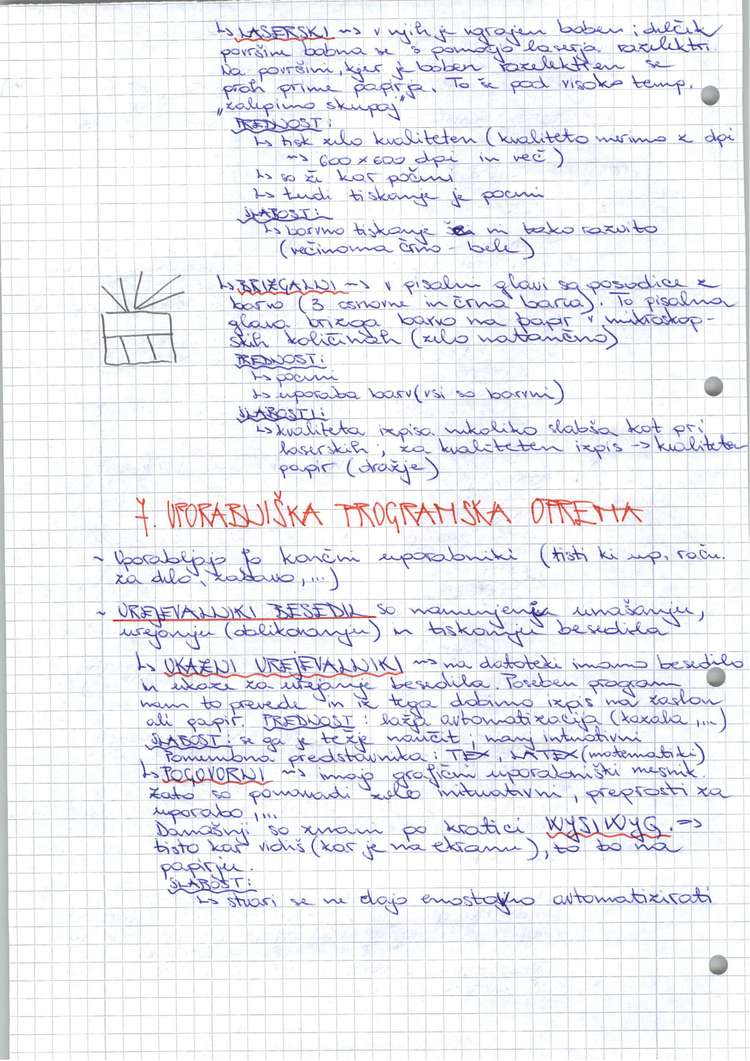 ↳ LASERSKI ~> v njih je vgrajen boben; delček
površine bobna se s pomočjo laserja razelektri.
Na površini, kjer je boben razelektren se
prah prime papirja. To še pod visoko temp.
„zalepimo skupaj"
PREDNOST:
↳ tisk zelo kvaliteten (kvaliteto merimo z dpi
~> 600 x 600 dpi in več)
↳ so že kar poceni
↳ tudi tiskanje je poceni
SLABOST:
↳ barvno tiskanje ni tako razvito
(večinoma črno - bele)
↳ BRIZGALNI ~> v pisalni glavi so posodice z
barvo (3 osnovne in črna barva). To pisalna
glava brizga barvo na papir v mikroskop-
skih količinah (zelo natančno)
PREDNOSTI:
↳ poceni
↳ uporaba barv (vsi so barvni)
SLABOSTI:
↳ kvaliteta izpisa nekoliko slabša kot pri
laserskih; za kvaliteten izpis -> kvaliteten
papir (dražje)
7. UPORABNIŠKA PROGRAMSKA OPREMA
~ Uporabljajo jo končni uporabniki (tisti ki up. raču.
za delo, zabavo,...)
~ UREJEVALNIKI BESEDIL so namenjeni unašanju,
urejanju (oblikovanju) in tiskanju besedila
↳ UKAZNI UREJEVALNIKI ~> na datoteki imamo besedilo
in ukaze za urejanje besedila. Poseben program
nam to prevede in iz tega dobimo izpis na zaslon
ali papir. PREDNOST: lažja avtomatizacija (kazala,...)
SLABOST: se ga je težje naučit, manj intuitivni
Pomembna predstavnika: TEX, LATEX (matematiki)
↳ POGOVORNI ~> imajo grafični uporabniški mesnik.
zato so ponavadi zelo intuitivni, preprosti za
uporabo,...
Današnji so znani po kratici WYSIWYG. =>
tisto kar vidiš (kar je na ekranu), to bo na
papirju.
SLABOST:
↳ stvari se ne dajo enostavno avtomatizirati